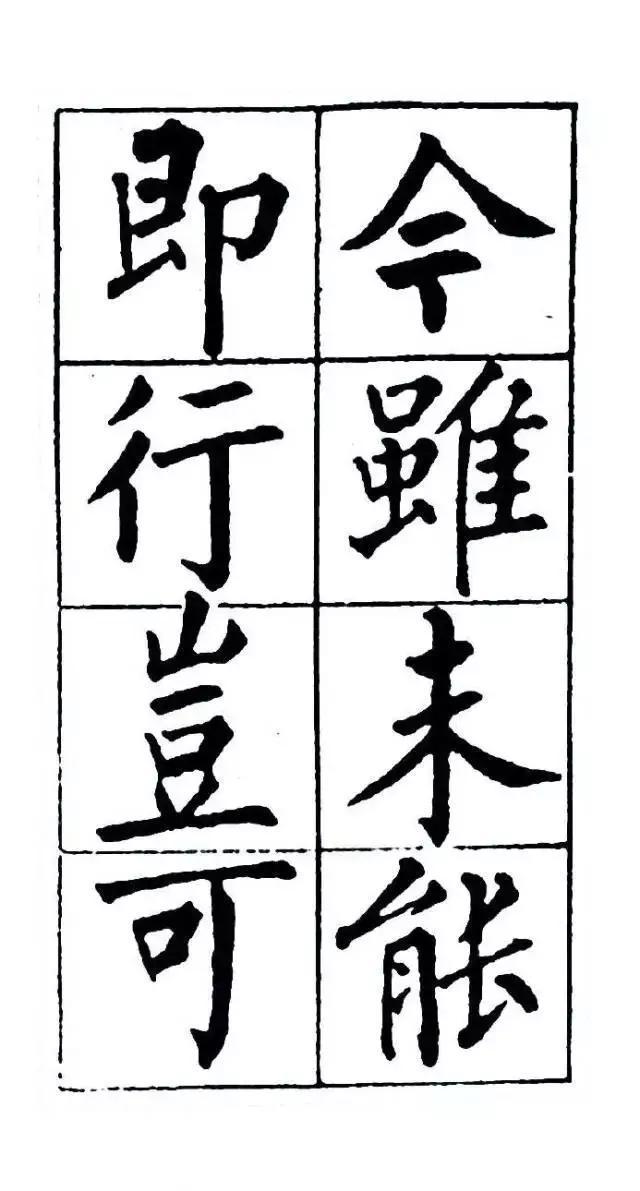 今雖未能
即行豈可